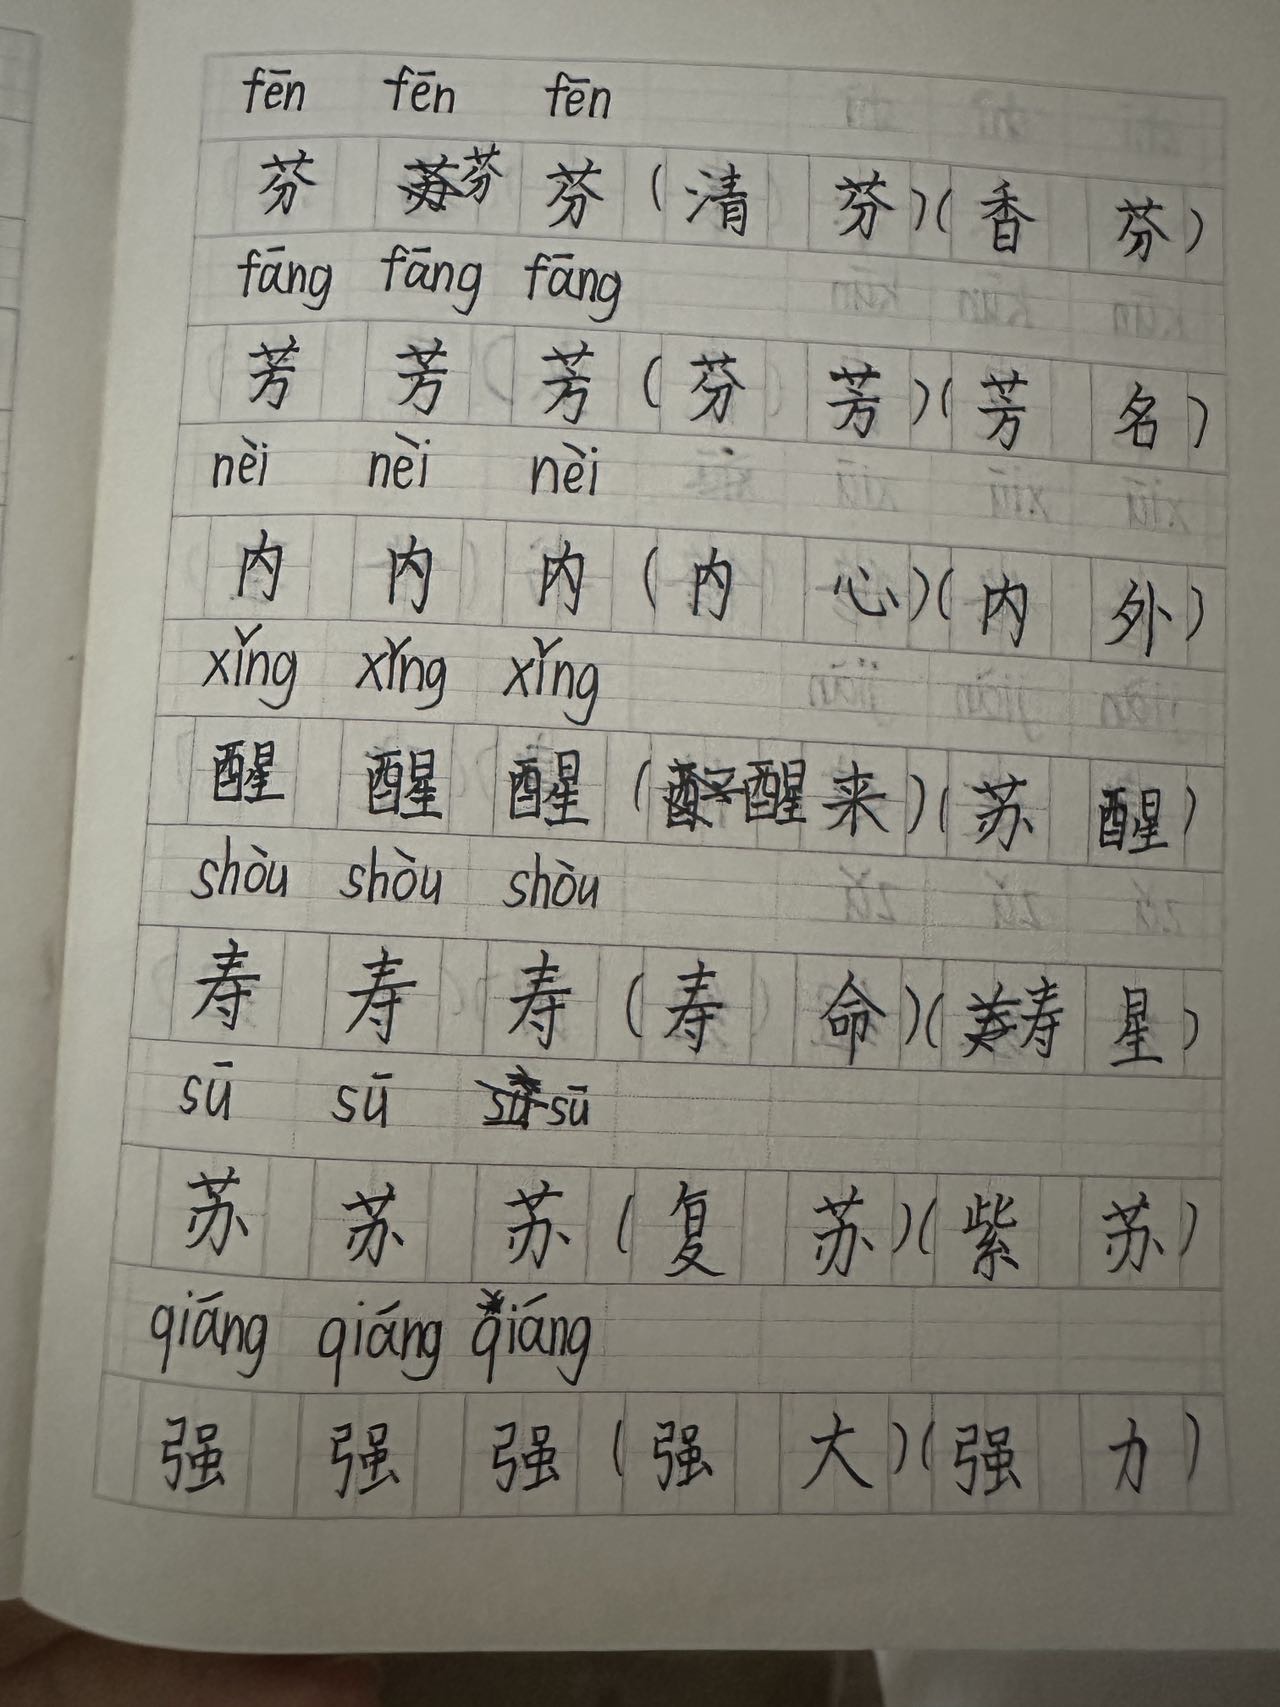 fēn fēn fēn
芬 芬 芬 (清 芬)(香 芬)
fāng fāng fāng
芳 芳 芳 (芬 芳)(芳 名)
nèi nèi nèi
内 内 内 (内 心)(内 外)
xǐng xǐng xǐng
醒 醒 醒 (醒 来)(苏 醒)
shòu shòu shòu
寿 寿 寿 (寿 命)(寿 星)
sū sū sū
苏 苏 苏 (复 苏)(紫 苏)
qiáng qiáng qiáng
强 强 强 (强 大)(强 力)